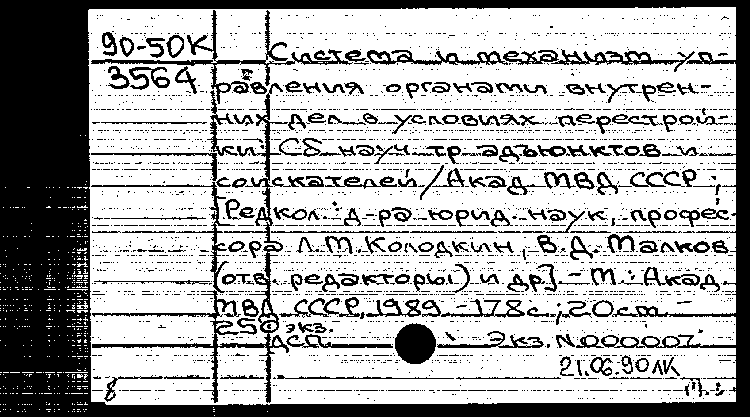 90-50К Система и механизм уп-
3564 равления органами внутрен-
них дел в условиях перестрой-
ки: Сб науч. тр. адъюнктов и
соискателей/Акад. МВД СССР;
[Редкол.: д-ра юрид. наук, профес-
сора Л.М.Колодкин, В.Д. Малков
(отв. редакторы) и др]. - М.: Акад.
МВД СССР, 1989. - 178с.; 20см -
250 экз.
ДСП. Экз. N000007.
21.06.90 ЛК
8